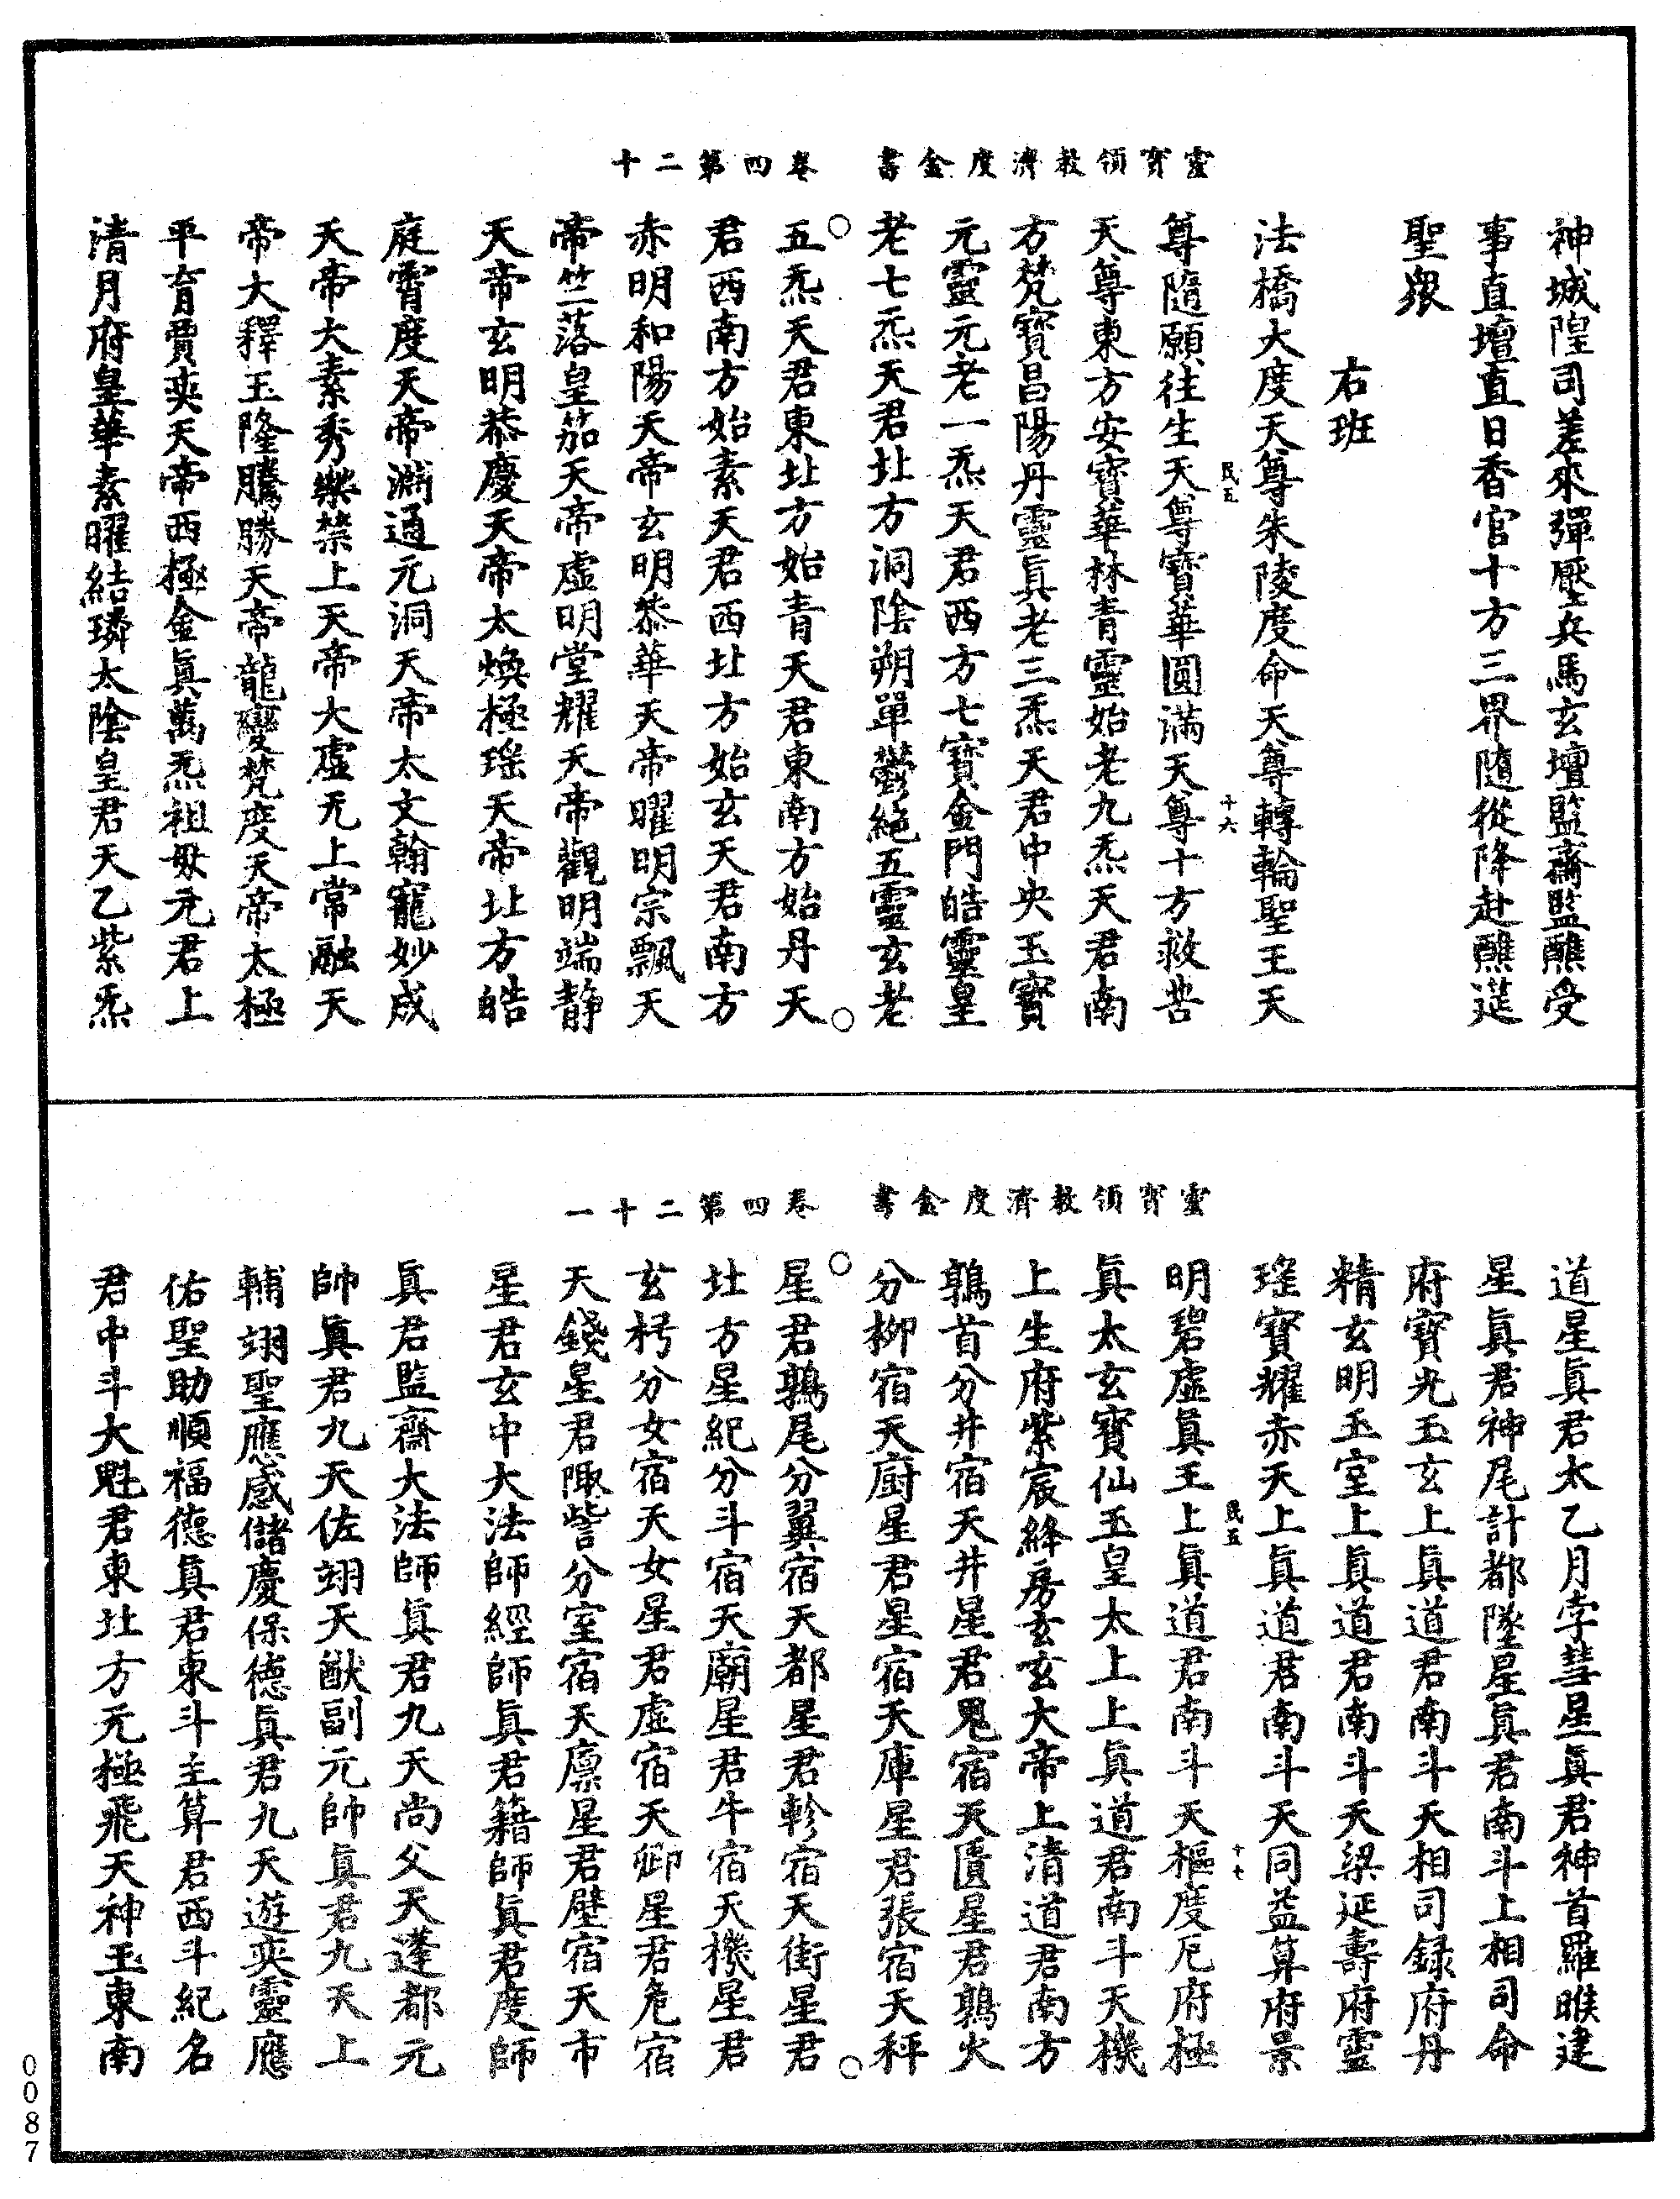 靈寳領教濟度金書　卷四第二十
神城隍司差來彈壓兵馬玄壇監齋監醮受
事直壇直日香官十方三界隨從降赴醮筵
聖衆
右班
法橋大度天尊朱陵度命天尊轉輪聖王天
尊隨願往生天尊寳華圓滿天尊十方救苦
民五
十六
天尊東方安寳華林青靈始老九炁天君南
方梵寳昌陽丹靈眞老三炁天君中央玉寳
元靈元老一炁天君西方七寳金門皓靈皇
老七炁天君北方洞陰朔單鬱絶五靈玄老
五炁天君東北方始青天君東南方始丹天
君西南方始素天君西北方始玄天君南方
赤明和陽天帝玄明恭華天帝曜明宗飄天
帝竺落皇笳天帝虛明堂耀天帝觀明端静
天帝玄明恭慶天帝太煥極瑶天帝北方皓
庭霄度天帝淵通元洞天帝太文翰寵妙成
天帝大素秀樂禁上天帝大虛无上常融天
帝大釋玉隆騰勝天帝龍變梵度天帝太極
平育賈奕天帝西極金眞萬炁祖母元君上
清月府皇華素曜結璘太陰皇君天乙紫炁
靈寳領教濟度金書　卷四第二十一
道星眞君太乙月孛彗星眞君神首羅睺建
星眞君神尾計都墜星眞君南斗上相司命
府寳光玉玄上眞道君南斗天相司録府丹
精玄明玉室上眞道君南斗天梁延壽府靈
瑤寳耀赤天上眞道君南斗天同益算府景
明碧虛眞王上眞道君南斗天樞度厄府極
民五
十七
眞太玄寳仙玉皇太上上眞道君南斗天機
上生府紫宸絳房玄玄大帝上清道君南方
鶉首分井宿天井星君鬼宿天匱星君鶉火
分柳宿天廚星君星宿天庫星君張宿天秤
星君鶉尾分翼宿天都星君軫宿天街星君
北方星紀分斗宿天廟星君牛宿天機星君
玄枵分女宿天女星君虛宿天卿星君危宿
天錢星君陬訾分室宿天廪星君壁宿天市
星君玄中大法師經師眞君籍師眞君度師
眞君監齋大法師眞君九天尚父天蓬都元
帥眞君九天佐翊天猷副元帥眞君九天上
輔翊聖應感儲慶保德眞君九天遊奕靈應
佑聖助順福德眞君東斗主算君西斗紀名
君中斗大魁君東北方元極飛天神王東南
0087